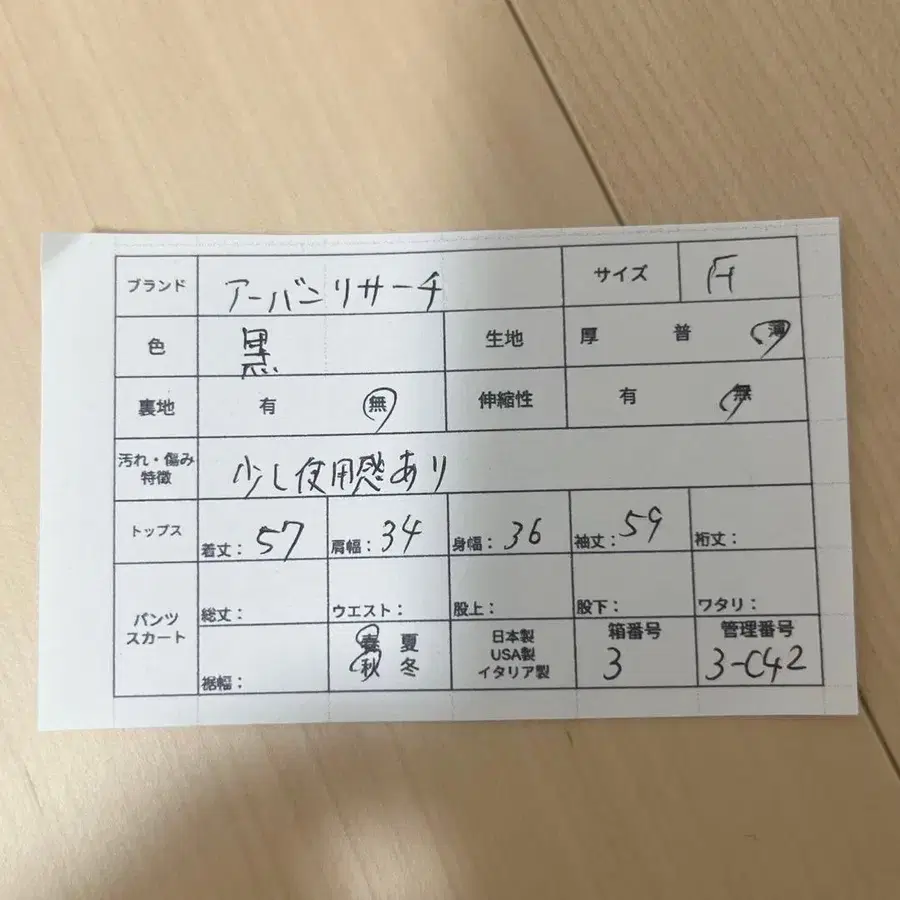 ブランド アーバンリサーチ サイズ F
色 黒 生地 厚 普 薄
裏地 有 無 伸縮性 有 無
汚れ・傷み
特徴 少し使用感あり
トップス 着丈: 57 肩幅: 34 身幅: 36 袖丈: 59 裄丈:
パンツ
スカート 総丈: ウエスト: 股上: 股下: ワタリ:
裾幅: 春 夏
秋 冬
日本製
USA製
イタリア製
箱番号
3
管理番号
3-C42